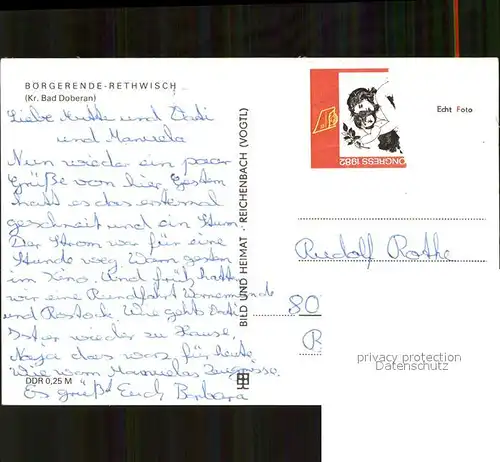 BÖRGERENDE-RETHWISCH
(Kr. Bad Doberan)
Liebe Mutti und Vati
und Manuela
Nun wieder ein paar
Grüße von hier. Gestern
hatt es das erstemal
geschneit und ein Sturm.
Der Strom war für eine
Stunde weg. Warn gestern
im Kino. Und früh hatten
wir eine Rundfahrt Warnemünde
und Rostock. Wie gehts Vati
Ist er wieder zu Hause.
Naja das wars für heute
Wie warn Manuelas Zeugnisse.
Es grüßt Euch Barbara
DDR 0,25 M
BILD UND HEIMAT · REICHENBACH (VOGTL)
ONGRESS 1982
Echt Foto
Rudolf Rothe
80
privacy protection
Datenschutz